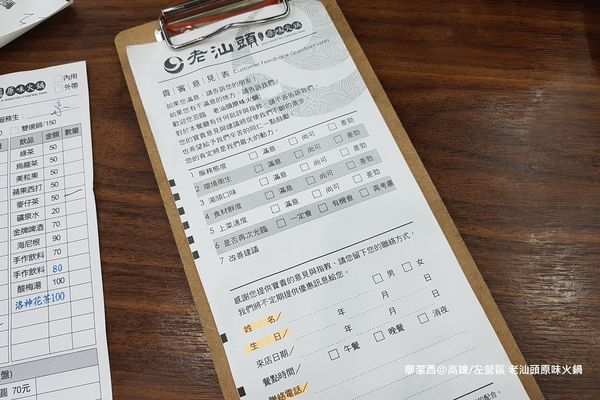 原味火鍋
內用
外帶
雙邊鍋/150
飲品 金額 數量
綠茶 50
烏龍茶 50
美粒果 50
蘋果西打 50
麥仔茶 50
礦泉水 20
金牌啤酒 70
海尼根 90
手作飲料 70
手作飲料 80
酸梅湯 100
洛神花茶100
70元
老汕頭 原味火鍋
貴賓意見表 Customer Feedback Questionnaires
如果您滿意，請告訴您的朋友！
如果您有不滿意的地方，請告訴我們。
歡迎您蒞臨 老汕頭原味火鍋，
對於本餐廳有任何批評與指教，請不吝告訴我們，
您的寶貴意見與建議將促使我們不斷的進步，
也希望給予我們辛苦的同仁一點鼓勵，
您的肯定將是我們最大的動力。
1 服務態度 滿意 尚可 差勁
2 環境衛生 滿意 尚可 差勁
3 湯頭口味 滿意 尚可 差勁
4 食材鮮度 滿意 尚可 差勁
5 上菜速度 滿意 尚可 差勁
6 是否再次光臨 一定會 有機會 再考慮
7 改善建議
感謝您提供寶貴的意見與指教，請您留下您的聯絡方式，
我們將不定期提供優惠訊息給您。
姓名/ 男 女
生日/ 年 月 日
來店日期/ 年 月 日
餐點時間/ 午餐 晚餐 消夜
聯絡電話/
的配合。
廖潔西@高雄/左營區 老汕頭原味火鍋